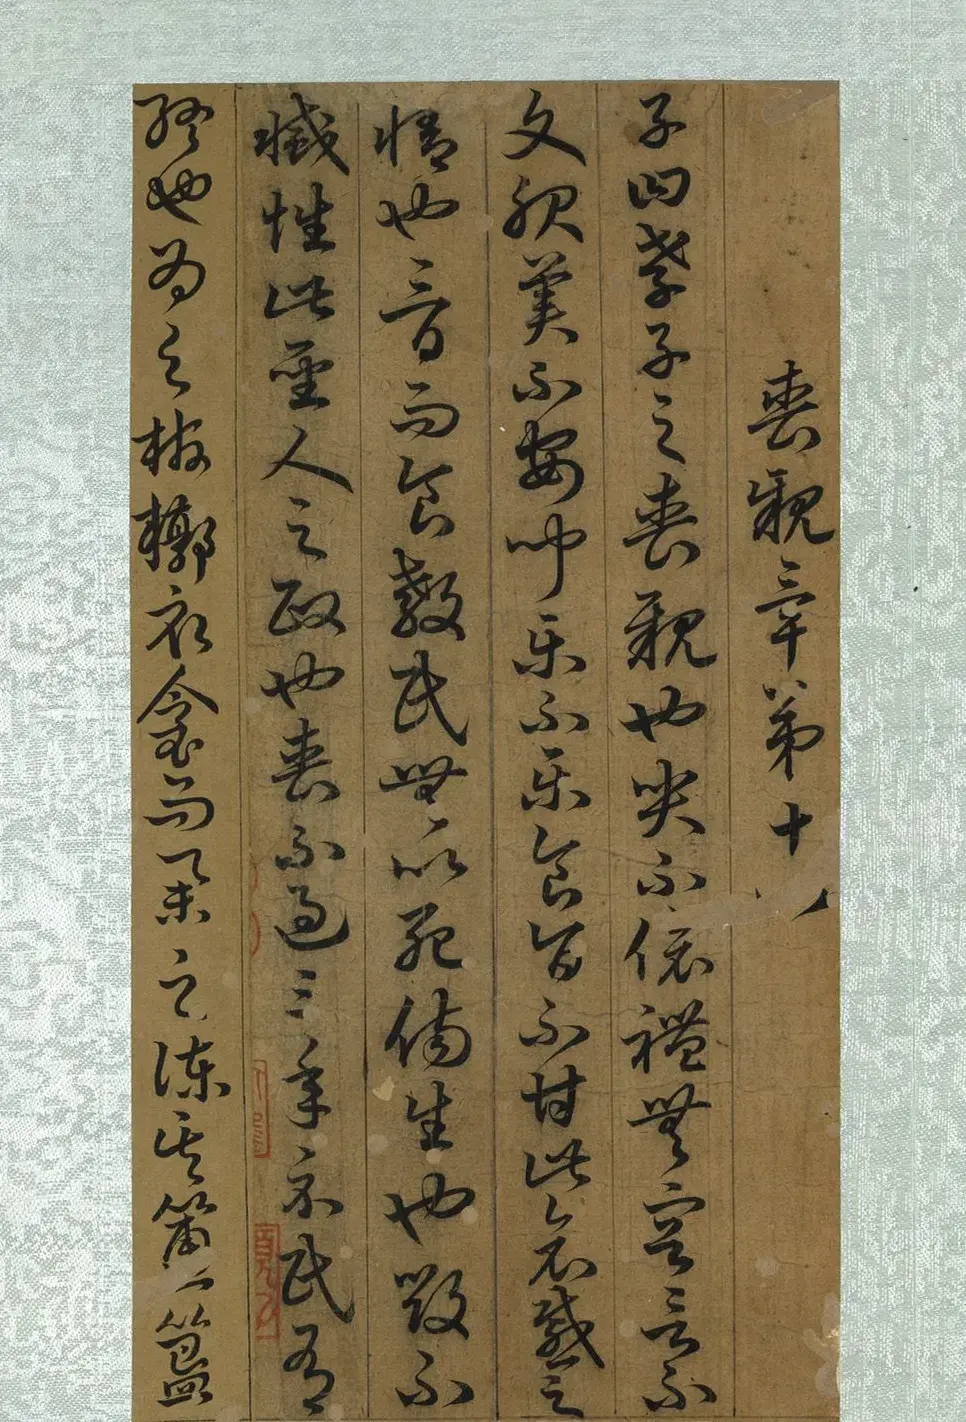 喪親章第十八
子曰孝子之喪親也哭不偯禮無容言不
文服美不安聞樂不樂食旨不甘此哀慼之
情也三日而食教民無以死傷生也毀不
滅性此聖人之政也喪不過三年示民有
終也為之棺槨衣衾而舉之陳其簠簋